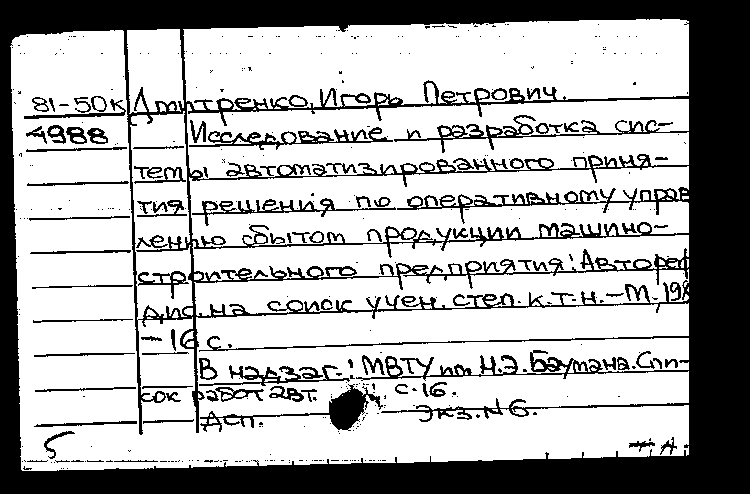 81-50к Дмитренко, Игорь Петрович.
4988 Исследование и разработка сис-
темы автоматизированного приня-
тия решения по оперативному управ
лению сбытом продукции машино-
строительного предприятия: Автореф
дис. на соиск учен. степ. к.т.н. - М., 198
- 16 с.
В надзаг.: МВТУ им. Н.Э. Баумана. Спи-
сок работ авт. с. 16.
Дсп. Экз. N 6.
5